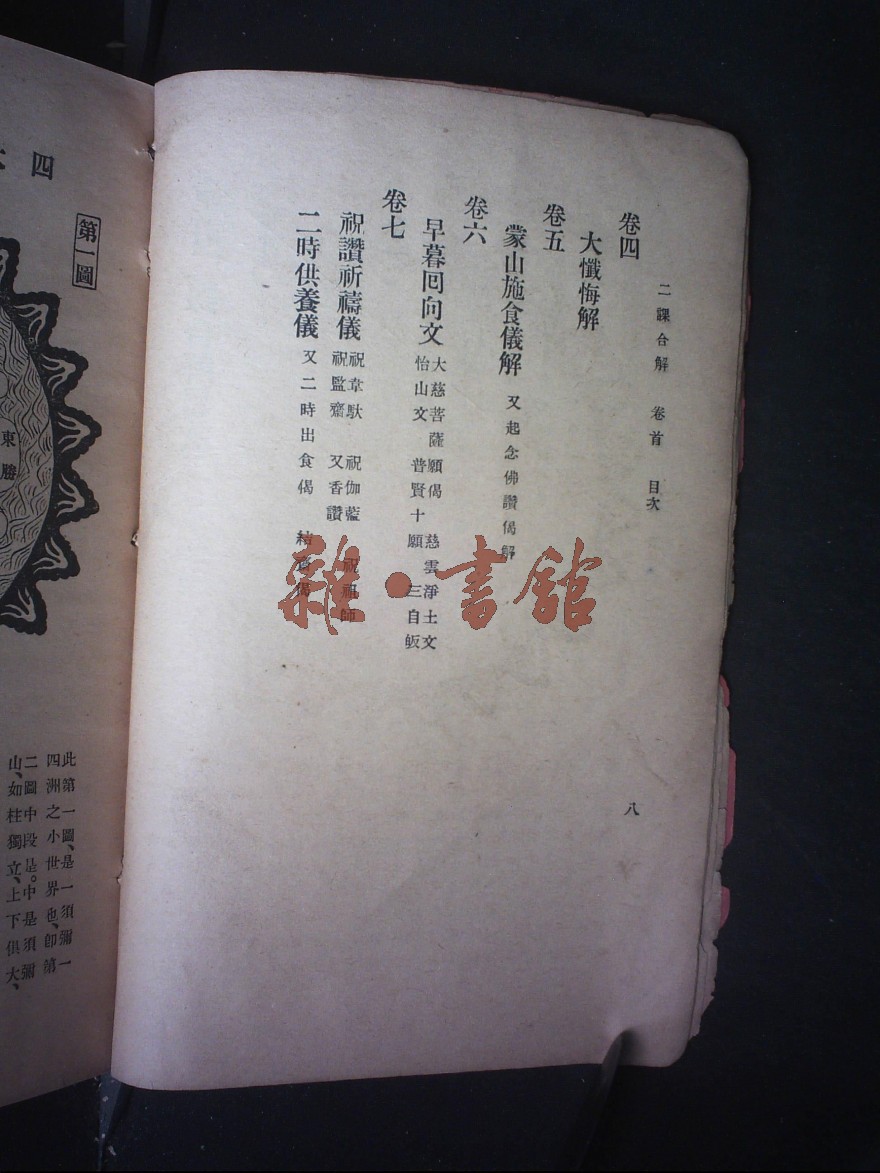 二課合解　卷首　目次
卷四
大懺悔解
卷五
蒙山施食儀解　又起念佛讚偈解
卷六
早暮囘向文　大慈菩薩願偈　慈雲淨土文
怡山文　普賢十願　三自皈
卷七
祝讚祈禱儀　祝韋馱　祝伽藍　祝祖師
祝監齋　又香讚
二時供養儀　又二時出食偈　結齋偈
八
雜·書館
四
第一圖
東勝
此第一圖、是一須彌一
四洲之小世界也、卽第
二圖中段是。中是須彌
山、如柱獨立、上下俱大、